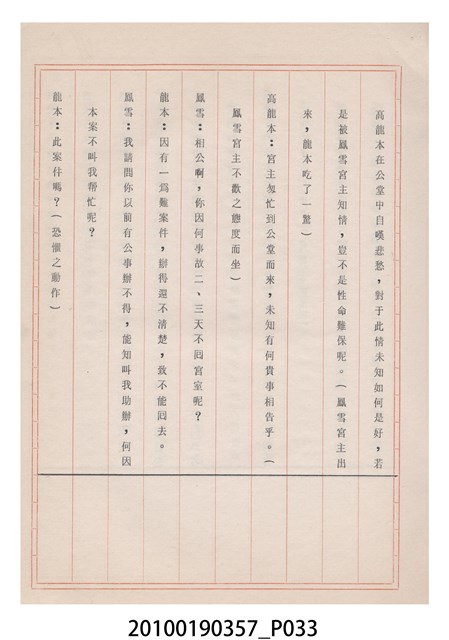 高龍本在公堂中自嘆悲愁，對于此情未知如何是好，若
是被鳳雪宮主知情，豈不是性命難保呢。（鳳雪宮主出
來，龍本吃了一驚）
高龍本：宮主匆忙到公堂而來，未知有何貴事相告乎。（
鳳雪宮主不歡之態度而坐）
鳳雪：相公啊，你因何事故二、三天不囘宮室呢？
龍本：因有一爲難案件，辦得還不清楚，致不能囘去。
鳳雪：我請問你以前有公事辦不得，能知叫我助辦，何因
本案不叫我帮忙呢？
龍本：此案件嗎？（恐懼之動作）
20100190357_P033